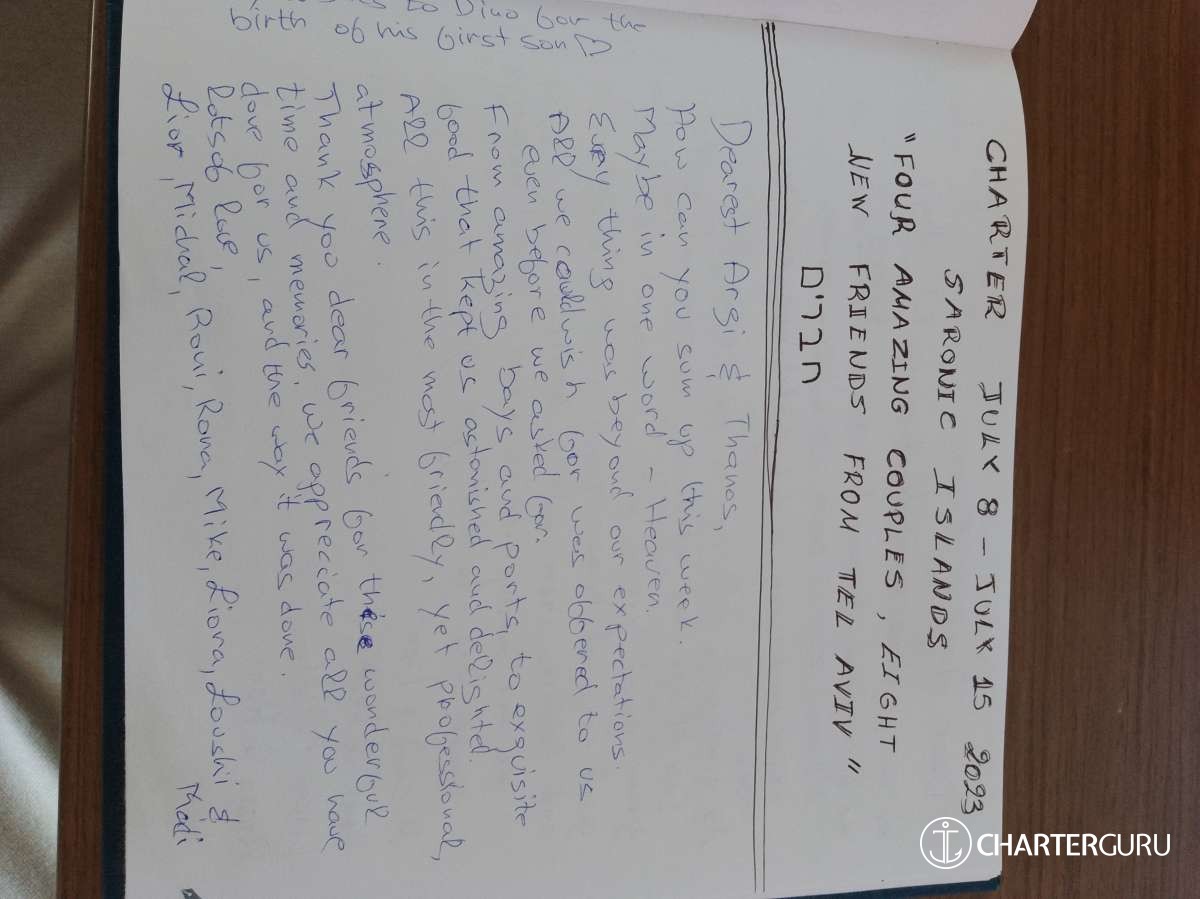 to Dino for the
birth of his first son ♡
CHARTER JULY 8 - JULY 15 2023
SARONIC ISLANDS
"FOUR AMAZING COUPLES, EIGHT
NEW FRIENDS FROM TEL AVIV"
חברים
Dearest Argi & Thanos,
How can you sum up this week.
Maybe in one word - Heaven.
Every thing was beyond our expectations.
All we could wish for was offered to us
even before we asked for.
From amazing bays and ports, to exquisite
food that kept us astonished and delighted.
All this in the most friendly, yet professional,
atmosphere.
Thank you dear friends for these wonderful
time and memories. we appreciate all you have
done for us, and the way it was done.
Lots of love,
Lior, Michal, Roni, Rona, Mike, Liora, Loushi &
Modi
CHARTERGURU